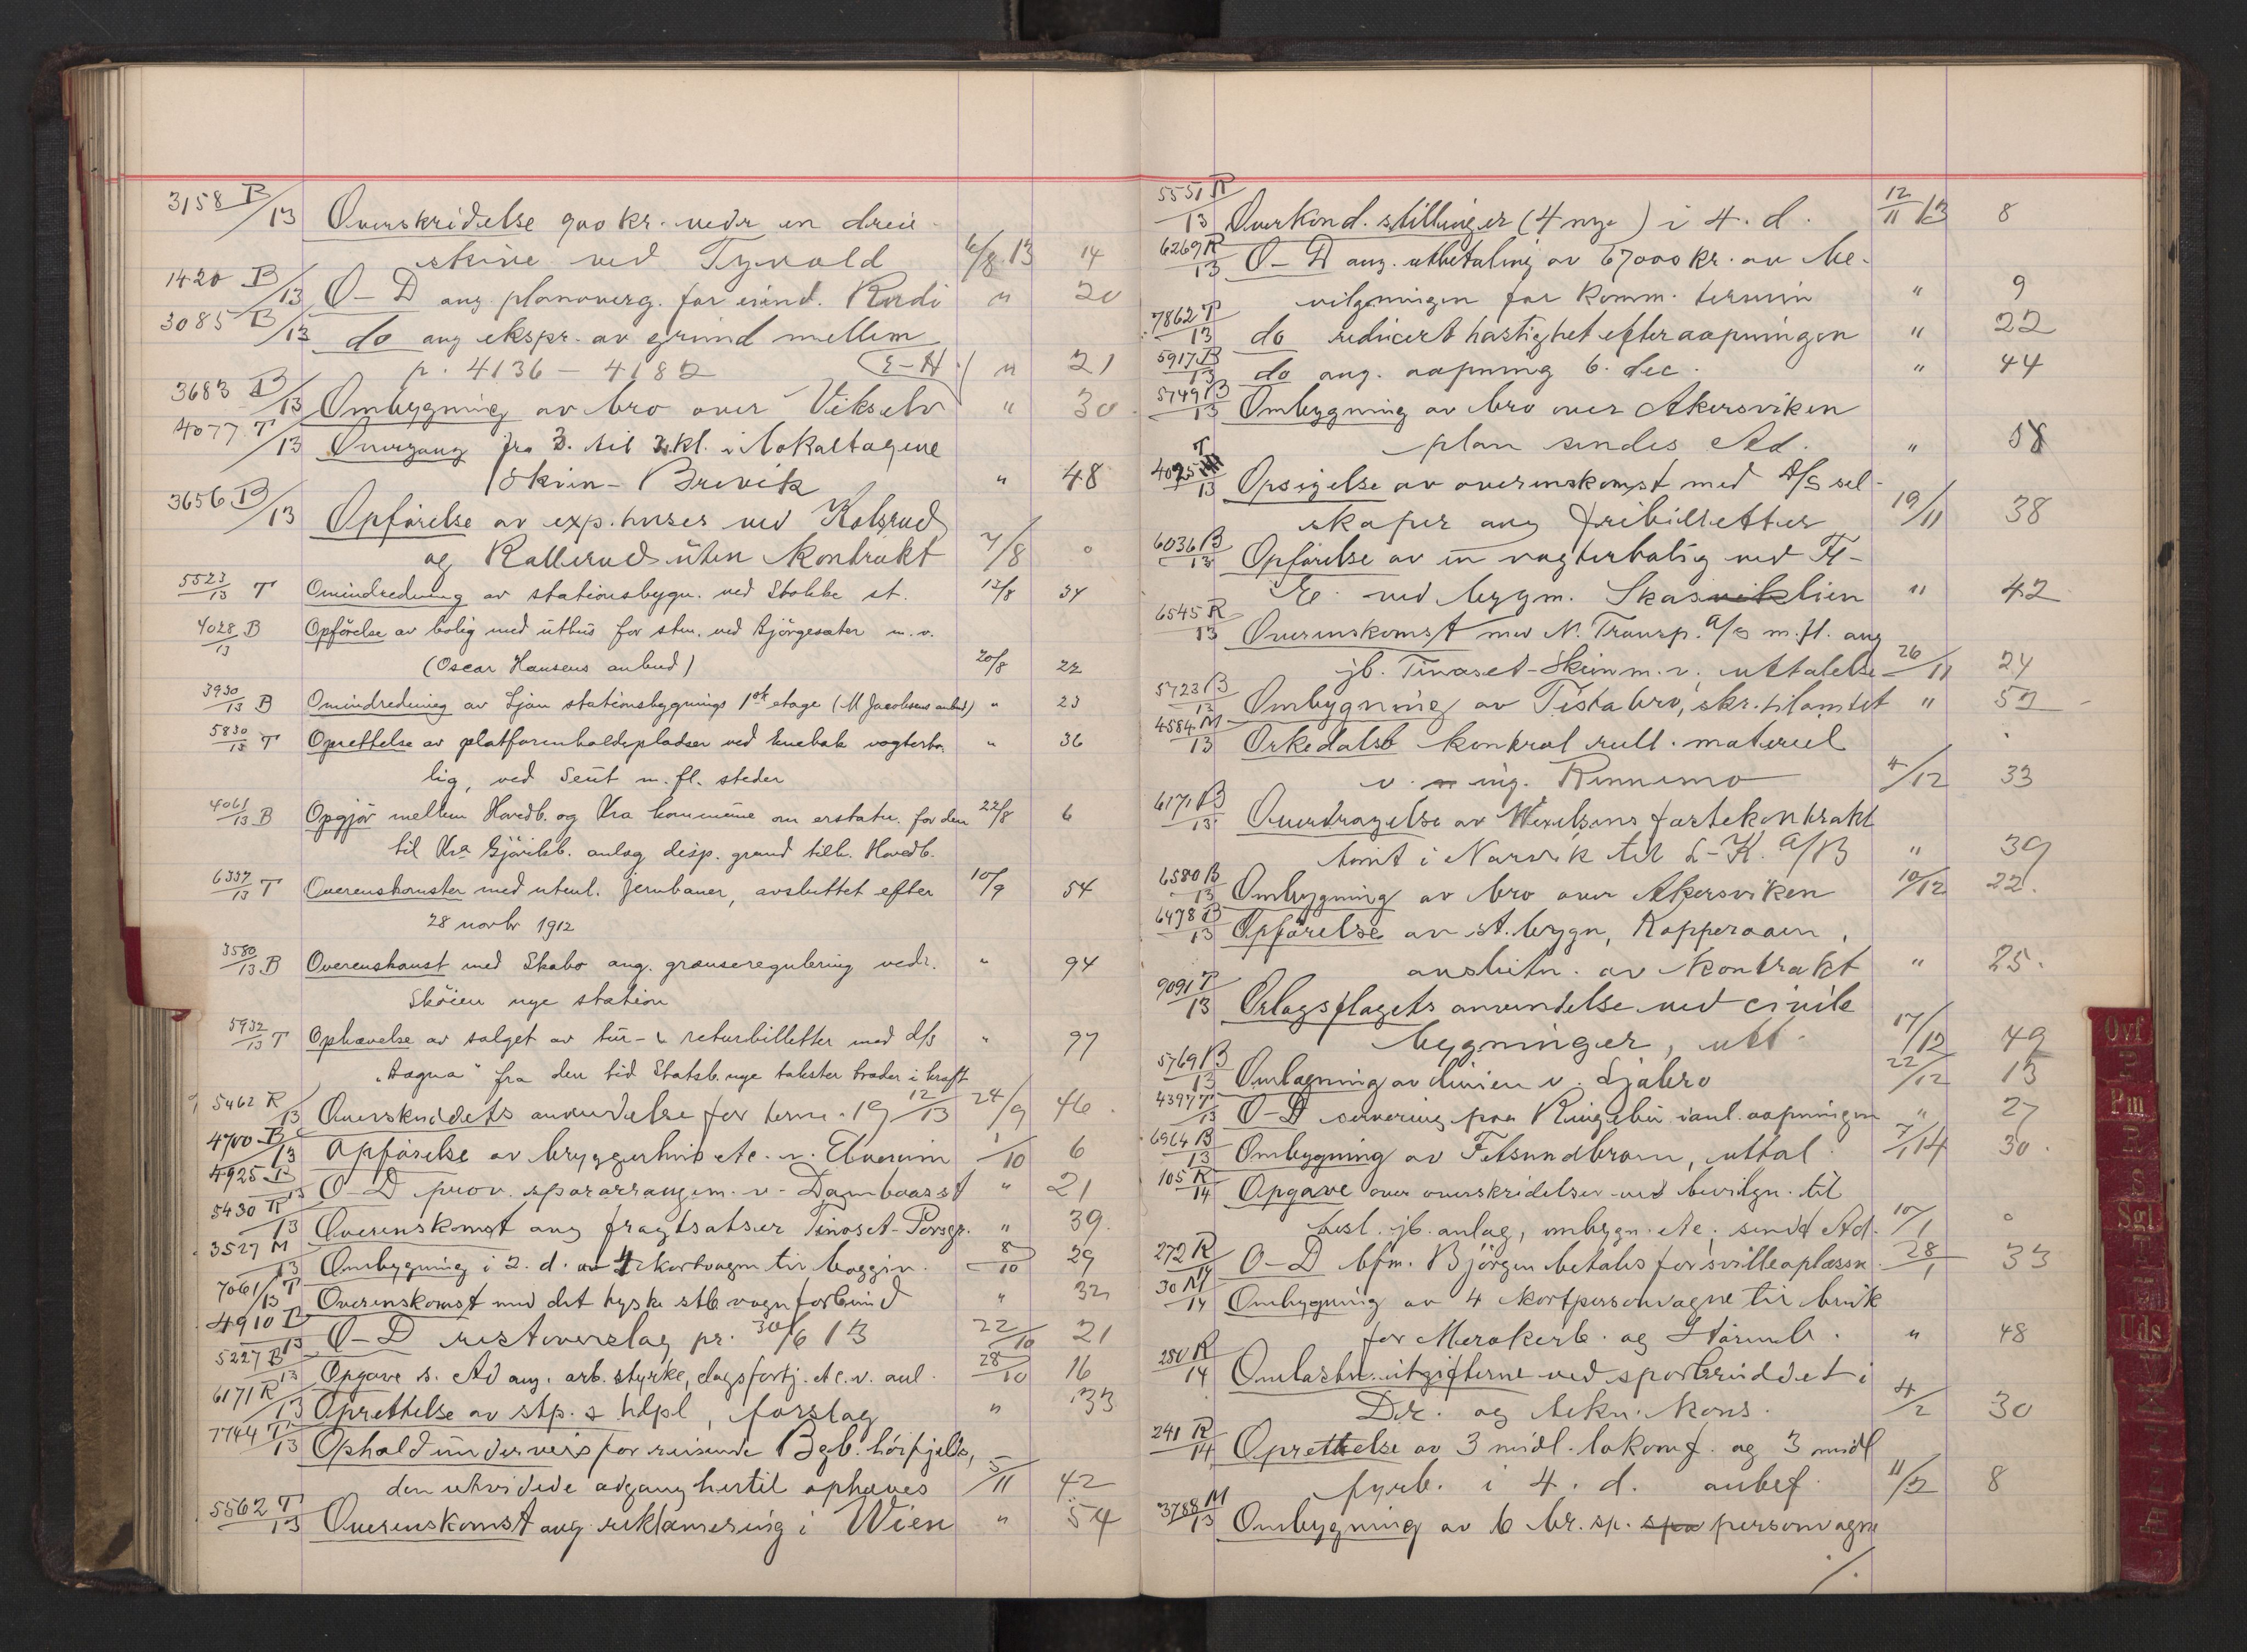 3158 B/13 Overskridelse 900 kr. vedr en dreie-
skive ved Tyvold 6/8 13 14
1420 B/13 O-D ang. planoverg. for eiend. 〃 20
3085 B/13 do ang ekspr. av grund mellem
p. 4136 - 4182 (E-H) 〃 21
3683 B/13 Ombygning av bro over Vikselv 〃 30
4077 T/13 Overgang fra 3. til 2 kl. i lokaltogene
Skien - Brevik 〃 48
3656 B/13 Opførelse av exp. huser ved Kolsrud
og Kallerud uten kontrakt 7/8 0
5523/13 T Omindredning av stationsbygn. ved Stokke st. 13/8 34
4028/13 B Opførelse av bolig med uthus for stm. ved Bjørgesæter m.v.
(Oscar Hansens anbud) 20/8 22
3930/13 B Omindredning av Ljan stationsbygnings 1ste etage (M Jacobsens anbud) 〃 23
5830/13 T Oprettelse av platformholdepladser ved Enebak vogterbo-
lig, ved Seut m. fl. steder 〃 36
4061/13 B Opgjør mellem Hovedb. og Kra kommune om erstatn. for den 22/8 6
til Kra Gjøvikb. anlæg disp. grund tilh. Hovedb.
6357/13 T Overenskomster med utenl. jernbaner, avsluttet efter 10/9 54
28 novbr 1912
3580/13 B Overenskomst med Skabo ang. grænseregulering vedr. 〃 94
Skøien nye station
5932/13 T Ophævelse av salget av tur- & returbilletter med d/s 〃 97
"Bagna" fra den tid Statsb. nye takster træder i kraft
5462 R/13 Overskuddets anvendelse for term. 19 12/13 24/9 46
4700 B/13 Opførelse av bryggerhus etc. v. Elverum 1/10 6
4925 B/13 O-D prov. sporarrangem. v. Dombaas st 〃 21
5430 R/13 Overenskomst ang fragtsatser Tinoset-Porsgr. 〃 39
3527 M/13 Ombygning i 2. d. av 4 kortvogne til boggiv. 8/10 29
7061 T/13 Overenskomst med det tyske stb vognforbund 〃 32
4910 B/13 O-D restoverslag pr. 30/6 13 22/10 21
5227 B/13 Opgave s. Ad ang. arb. styrke, dagsfortj. etc. v. anl. 28/10 16
6171 R/13 Oprettelse av stp. & hlpl, forslag 〃 33
7744 T/13 Ophold underveis for reisende Bgb. høifjeld,
den utvidede adgang hertil ophæves 5/11 42
5562 T/13 Overenskomst ang reklamering i Wien 〃 54
5551 R/13 Overkond. stillinger (4 nye) i 4. d. 12/11 13 8
6269 R/13 O-D ang. utbetaling av 67000 kr. av be-
vilgningen for komm. termin 〃 9
7862 T/13 do reducert hastighet efter aapningen 〃 22
5917 B/13 do ang. aapning 6. dec. 〃 44
5749 B/13 Ombygning av bro over Akersviken
plan sendes Ad. 〃 58
4025 T/13 Opsigelse av overenskomst med D/S sel-
skaper ang fribilletter 19/11 38
6036 B/13 Opførelse av en vogterbolig ved H-
E. ved bygm. Skasliien 〃 42
6545 R/13 Overenskomst med N. Transp. A/S m. fl. ang
jb. Tinoset-Skien m. v. uttalelse 26/11 24
5723 B/13 Ombygning av Tista bro, skr. til amtet 〃 59
4584 M/13 Orkedalsb kontrol rull. materiel
v. ing. Rennemo 4/12 33
6171 B/13 Overdragelse av Wexelsens fæstekontrakt
tomt i Narvik til L-K. A/B 〃 39
6580 B/13 Ombygning av bro over Akersviken 10/12 22.
6478 B/13 Opførelse av st. bygn, Kopperaaen,
avslutn. av kontrakt 〃 25.
9091 T/13 Orlogsflagets anvendelse ved civile
bygninger, utt. 17/12 49
5769 B/13 Omlægning av linien v. Ljabro 22/12 13
4397 T/13 O-D servering paa Ringebu i anl. aapningen 〃 27
6964 B/13 Ombygning av Fetsundbroen, uttal. 7/1 14 30.
105 R/14 Opgave over overskridelser ved bevilgn. til
best. jb. anlæg, ombygn. etc. sendt Ad. 10/1 0
272 R/14 O-D bfm. Bjørgen betales for svilleoplassn. 28/1 33
30 M/14 Ombygning av 4 kortpersonvogne til bruk
for Merakerb. og Størenb. 〃 48
250 R/14 Omkostn. utgifterne ved sporbruddet i
Dr. og tekn. kons. 4/2 30
241 R/14 Oprettelse av 3 midl. lokomf. og 3 midl
fyrb. i 4. d. anbef. 11/2 8
3788 M/13 Ombygning av 6 br. sp. personvogne
./.
Ovf
P
Pm
R
S
Sgl
T
Uds